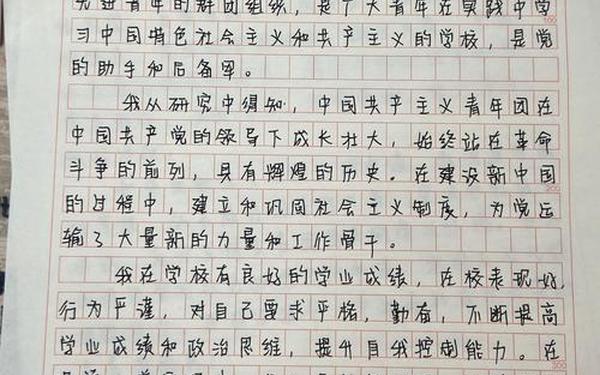 先进青年的群团组织，是广大青年在实践中学
习中国特色社会主义和共产主义的学校，是党
的助手和后备军。
我从研究中得知，中国共产主义青年团在
中国共产党的领导下成长壮大，始终站在革命
斗争的前列，具有辉煌的历史。在建设新中国
的过程中，建立和巩固社会主义制度，为党运
输了大量新的力量和工作骨干。
我在学校有良好的学业成绩，在校表现好，
行为严谨，对自己要求严格，勤奋，不断提高
学业成绩和政治思维，提升自我控制能力。在